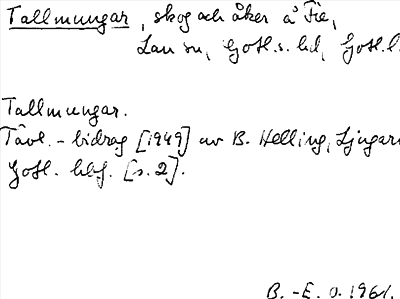 Tallmungar, skog och åker å Fie,
Lau sn, Gotl. s. hd, Gotl. l.
Tallmungar.
Tävl.-bidrag [1949] av B. Helling, Ljugarn
Gotl. hbf. [s. 2].
B.-E. O. 1961.